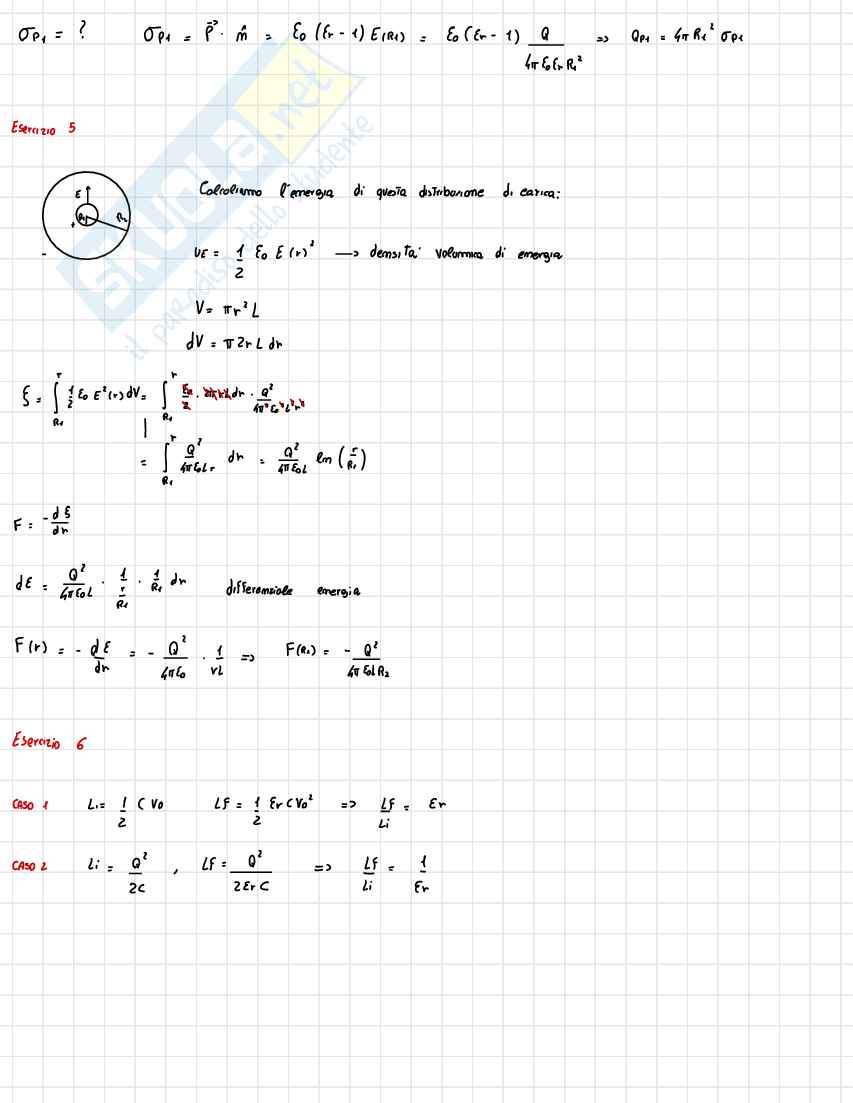 σP1 = ? σP1 = P⃗ · m̂ = ε0 (εr - 1) E(R1) = ε0 (εr - 1) Q / 4π ε0 εr R1² => QP1 = 4π R1² σP1
Esercizio 5
E R1 R2 + -
Calcoliamo l'energia di questa distribuzione di carica:
uE = 1/2 ε0 E(r)² —> densità volumica di energia
V = πr² L
dV = π 2r L dr
ξ = ∫_R1^r 1/2 ε0 E²(r) dV = ∫_R1^r ε0/2 · 2π r L dr · Q² / 4π² ε0² L² r²
= ∫_R1^r Q² / 4π ε0 L r dr = Q² / 4π ε0 L ln (r/R1)
F = - dξ/dr
dE = Q² / 4π ε0 L · 1 / (r/R1) · 1/R1 dr differenziale energia
F(r) = - dE/dr = - Q² / 4π ε0 · 1/rL => F(R2) = - Q² / 4π ε0 L R2
Esercizio 6
CASO 1 Li = 1/2 C V0 Lf = 1/2 εr C V0² => Lf/Li = εr
CASO 2 Li = Q²/2C , Lf = Q² / 2 εr C => Lf/Li = 1/εr
SKUOLA.net
il paradiso dello studente